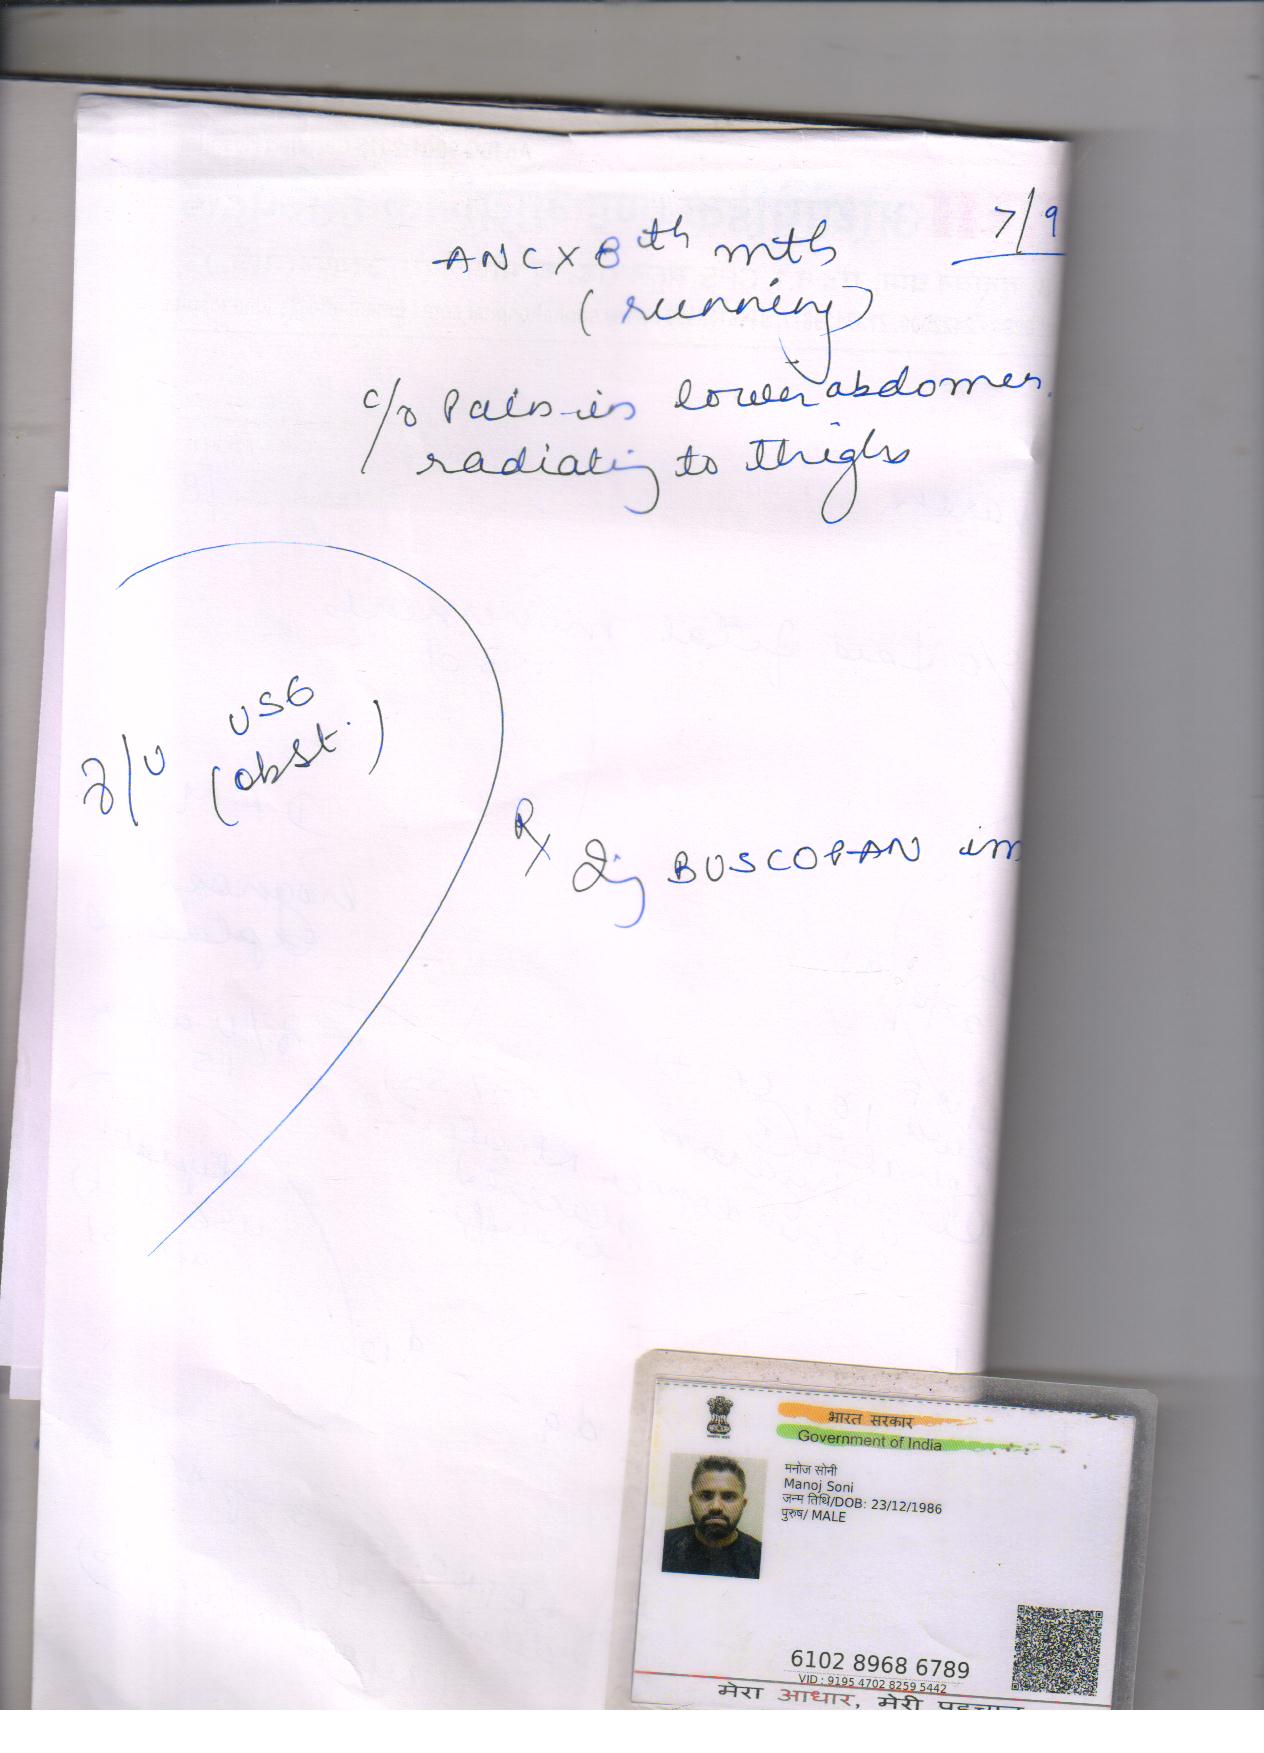 7/9
ANC X 8th mth
(running)
c/o Pain in lower abdomen.
radiating to thighs
USG
(obst.)
Rx
Inj BUSCOPAN im
भारत सरकार
Government of India
मनोज सोनी
Manoj Soni
जन्म तिथि/DOB: 23/12/1986
पुरुष/ MALE
6102 8968 6789
VID : 9195 4702 8259 5442
मेरा आधार, मेरी पहचान